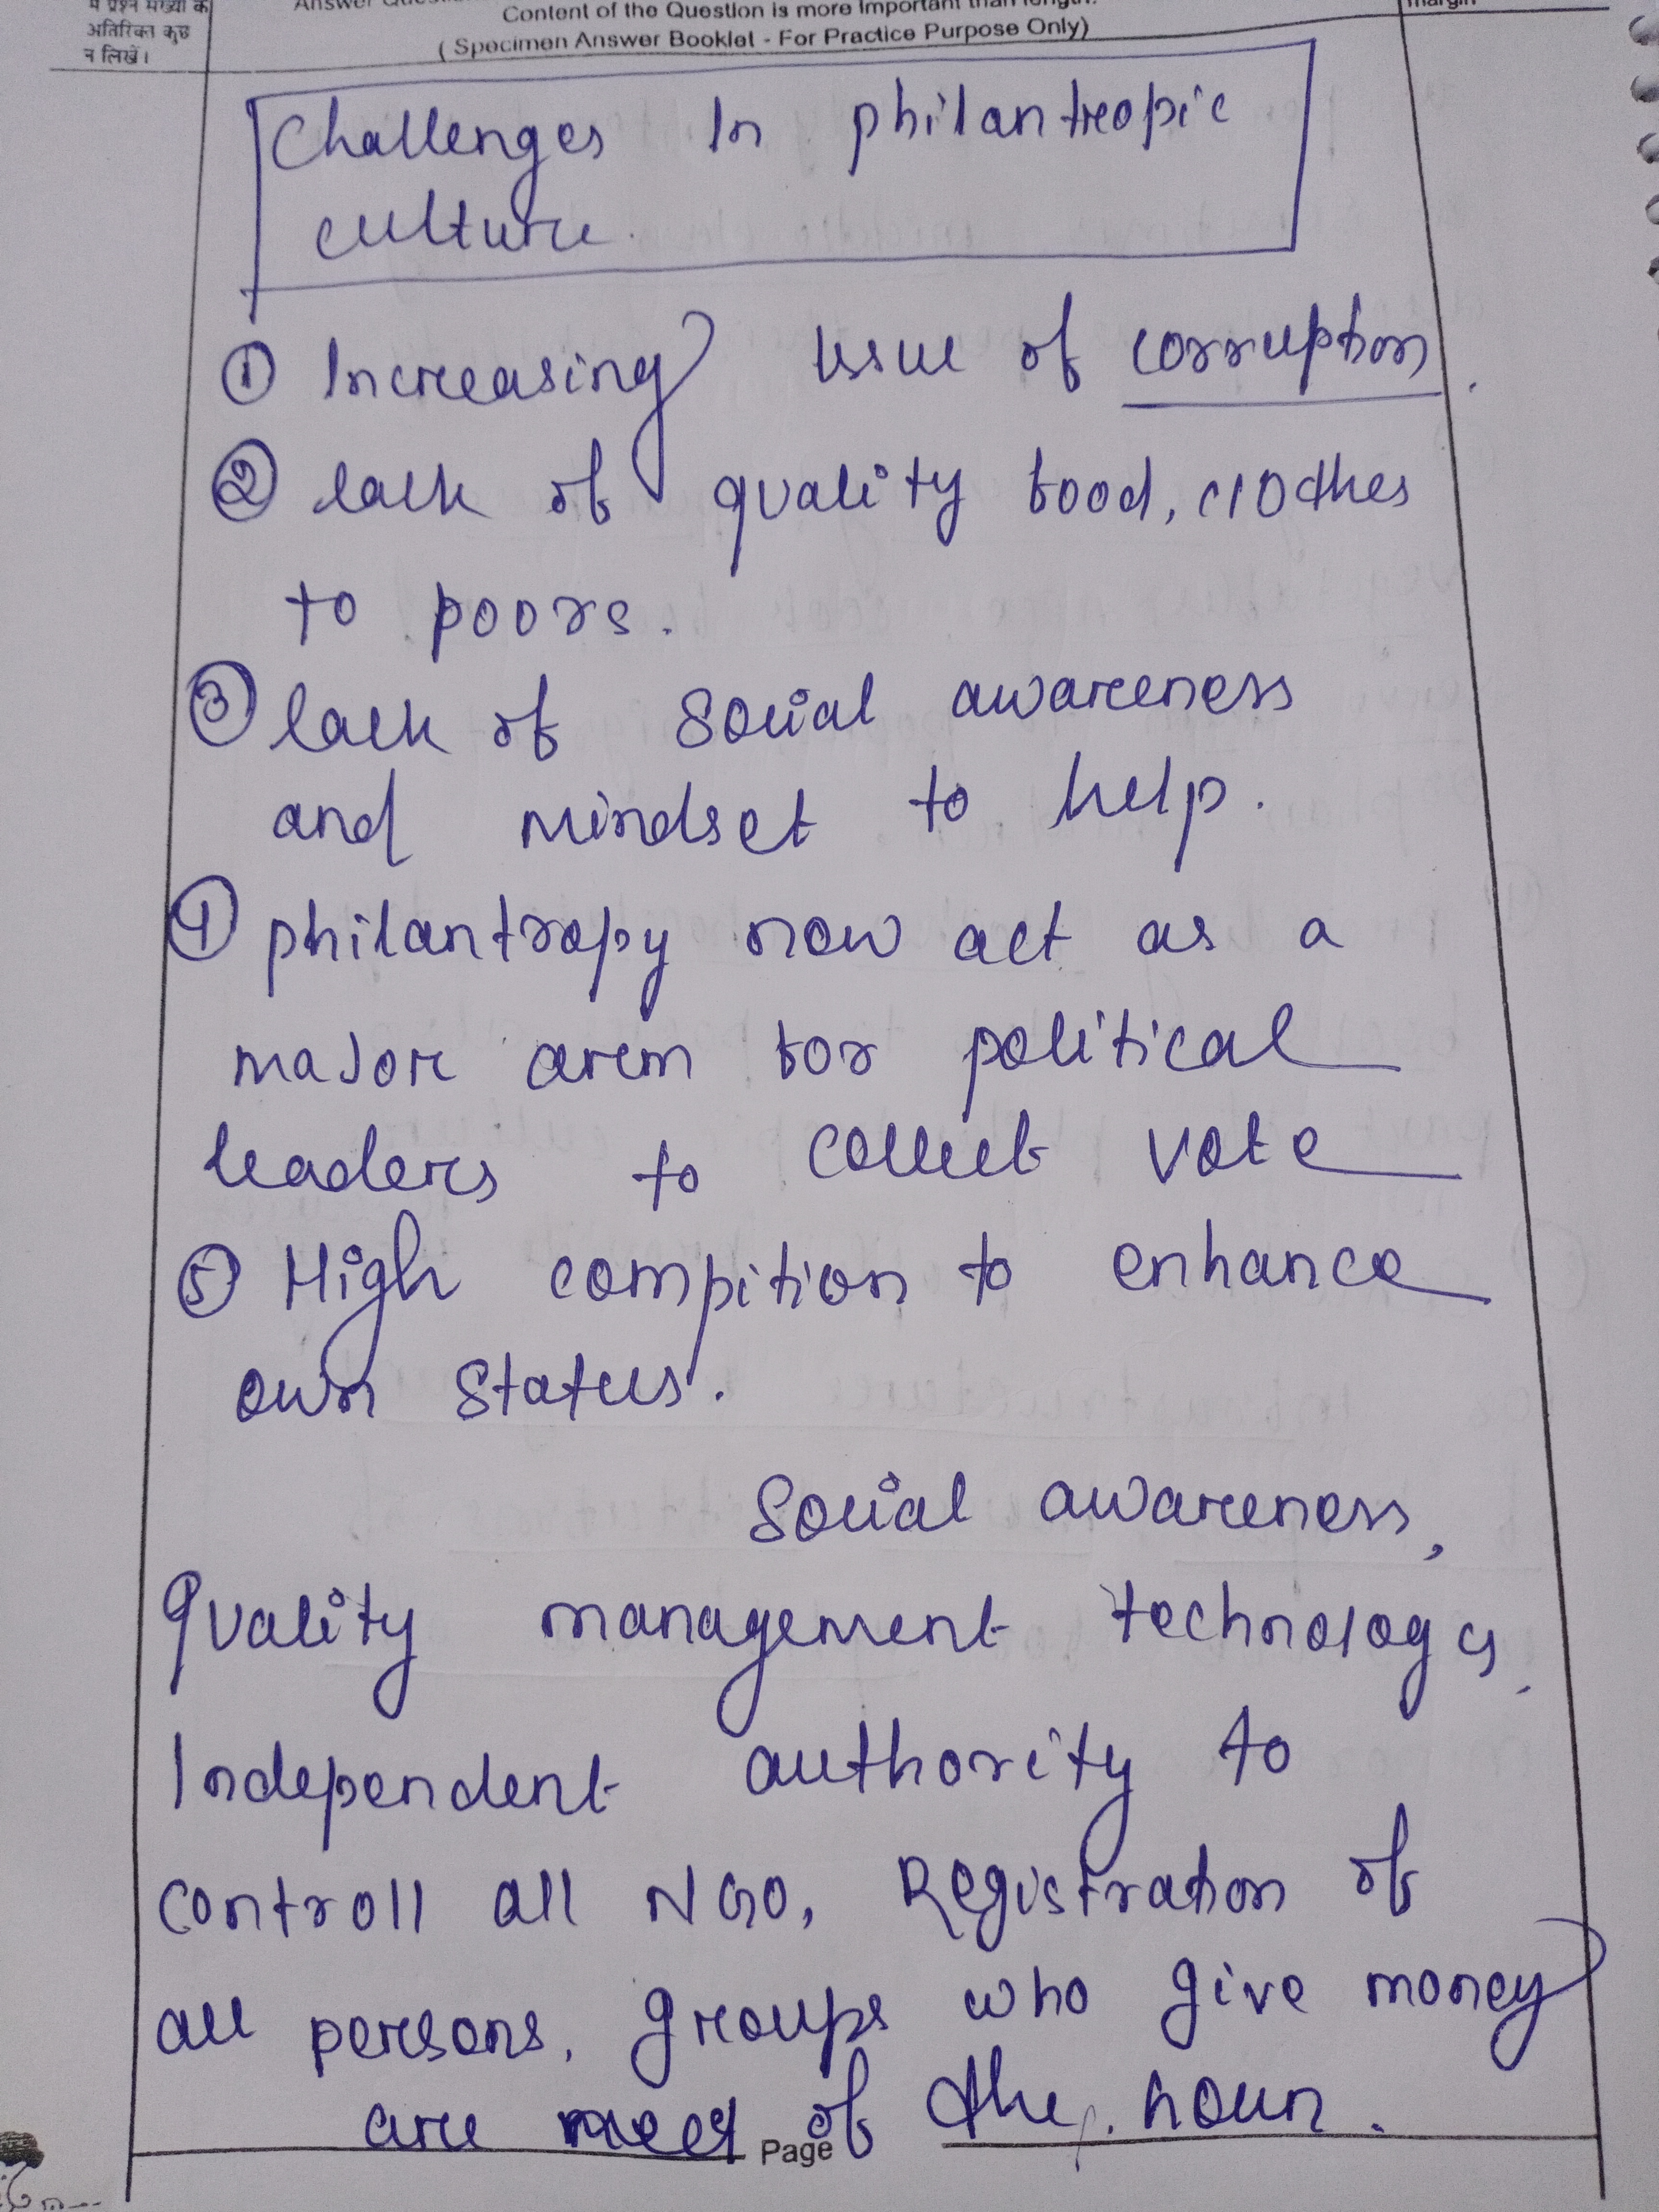 में प्रश्न संख्या के
अतिरिक्त कुछ
न लिखें।
Content of the Question is more important than length.
( Specimen Answer Booklet - For Practice Purpose Only)
margin
Challenges In philantreopic
culture.
① Increasing issue of corruption.
② lack of quality food, clothes
to poors.
③ lack of social awareness
and mindset to help.
④ philantropy now act as a
major arem for political
leaders to collect vote
⑤ High compition to enhance
own status.
Social awareness,
Quality management technology,
Independent authority to
controll all NGO, Registration of
all persons, groups who give money
are need of the hour.
Page